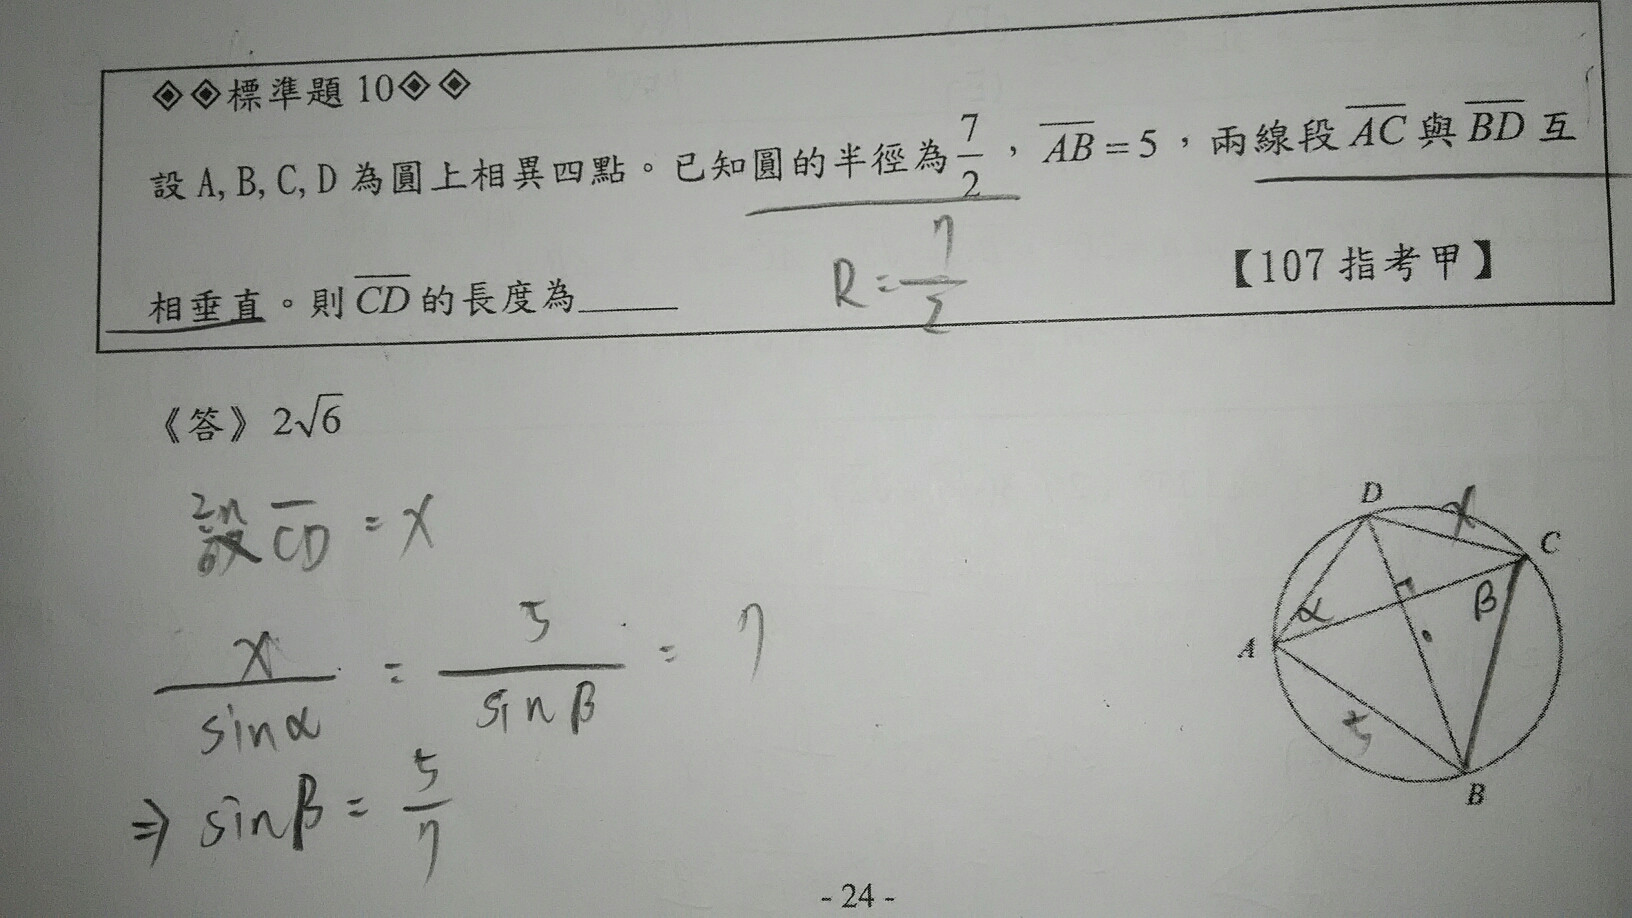 ◈◈標準題10◈◈
設 A, B, C, D 為圓上相異四點。已知圓的半徑為 7/2，AB = 5，兩線段 AC 與 BD 互
相垂直。則 CD 的長度為_____ 【107 指考甲】
R = 7/2
《答》2√6
設 CD = x
x/sinα = 5/sinβ = 7
⇒ sinβ = 5/7
D
x
C
α
β
A
5
B
- 24 -